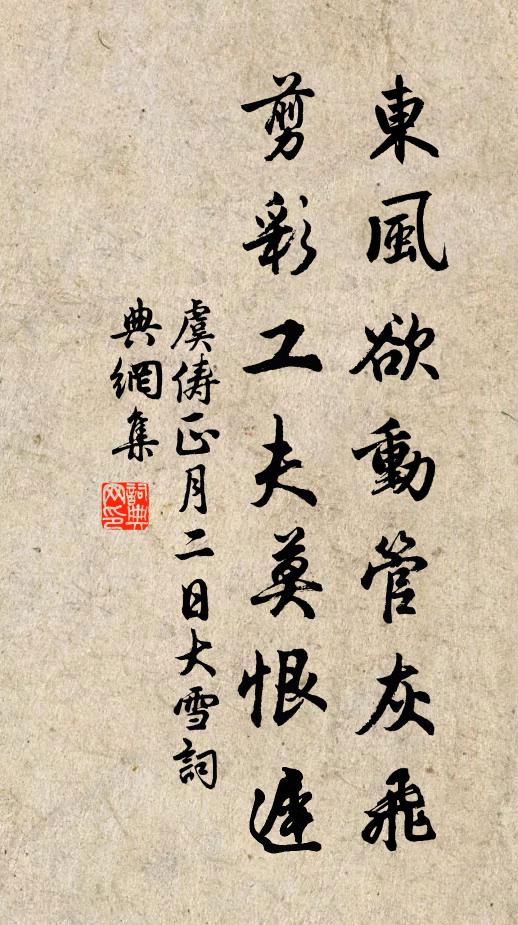 東風欲動管灰飛
剪彩工夫莫恨遲
虞儔正月二日大雪詞
典網集
詞典
网印